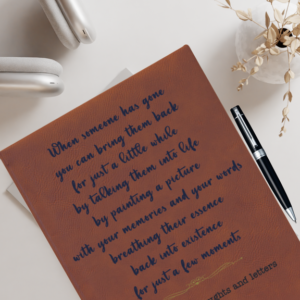 When someone has gone
you can bring them back
for just a little while
by talking them into life
by painting a picture
with your memories and your words
breathing their essence
back into existence
for just a few moments
and letters